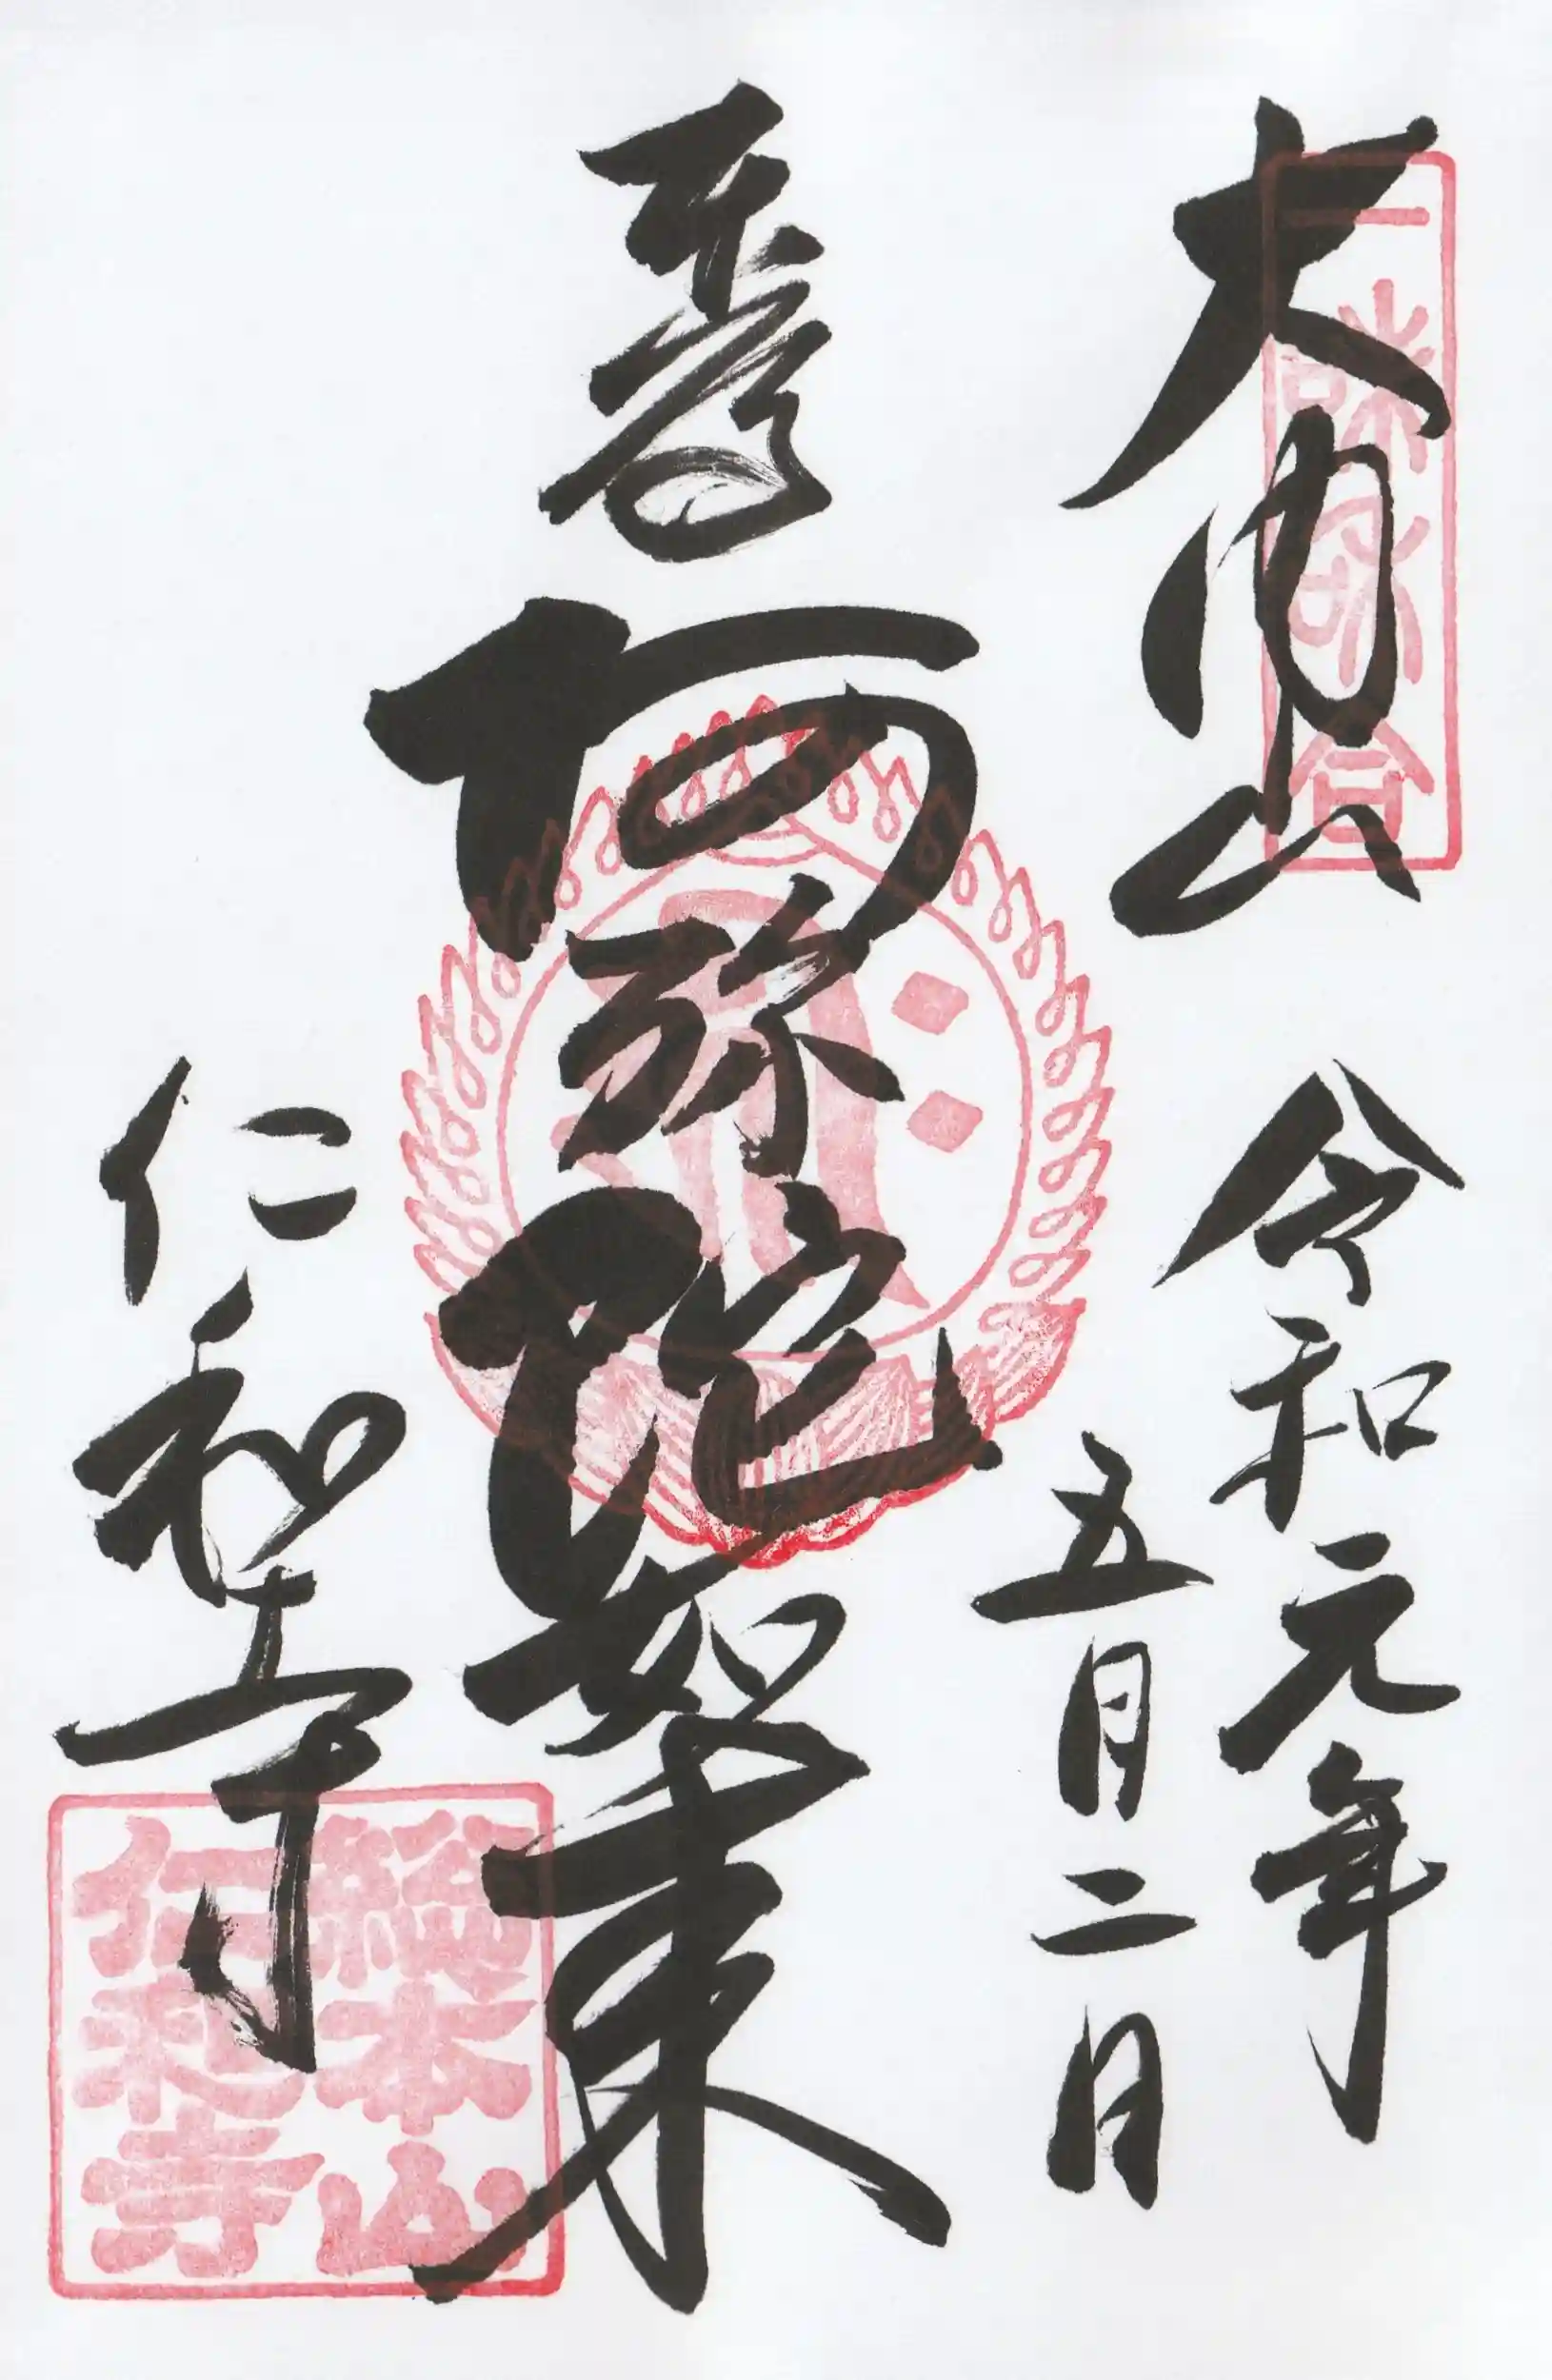 大内山
一味和合
令和元年
五月二日
阿弥陀如来
仁和寺
總本山
仁和寺